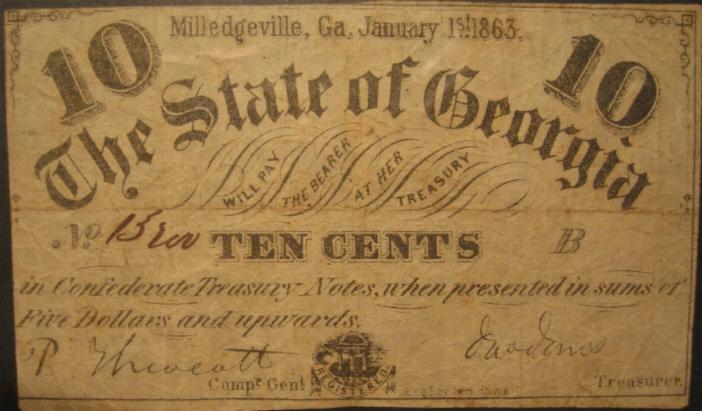 Milledgeville, Ga. January 1st 1863.
10 10
The State of Georgia
WILL PAY THE BEARER AT HER TREASURY
No.
TEN CENTS B
in Confederate Treasury Notes, when presented in sums of
Five Dollars and upwards.
Compr Genl REGISTERED Treasurer.